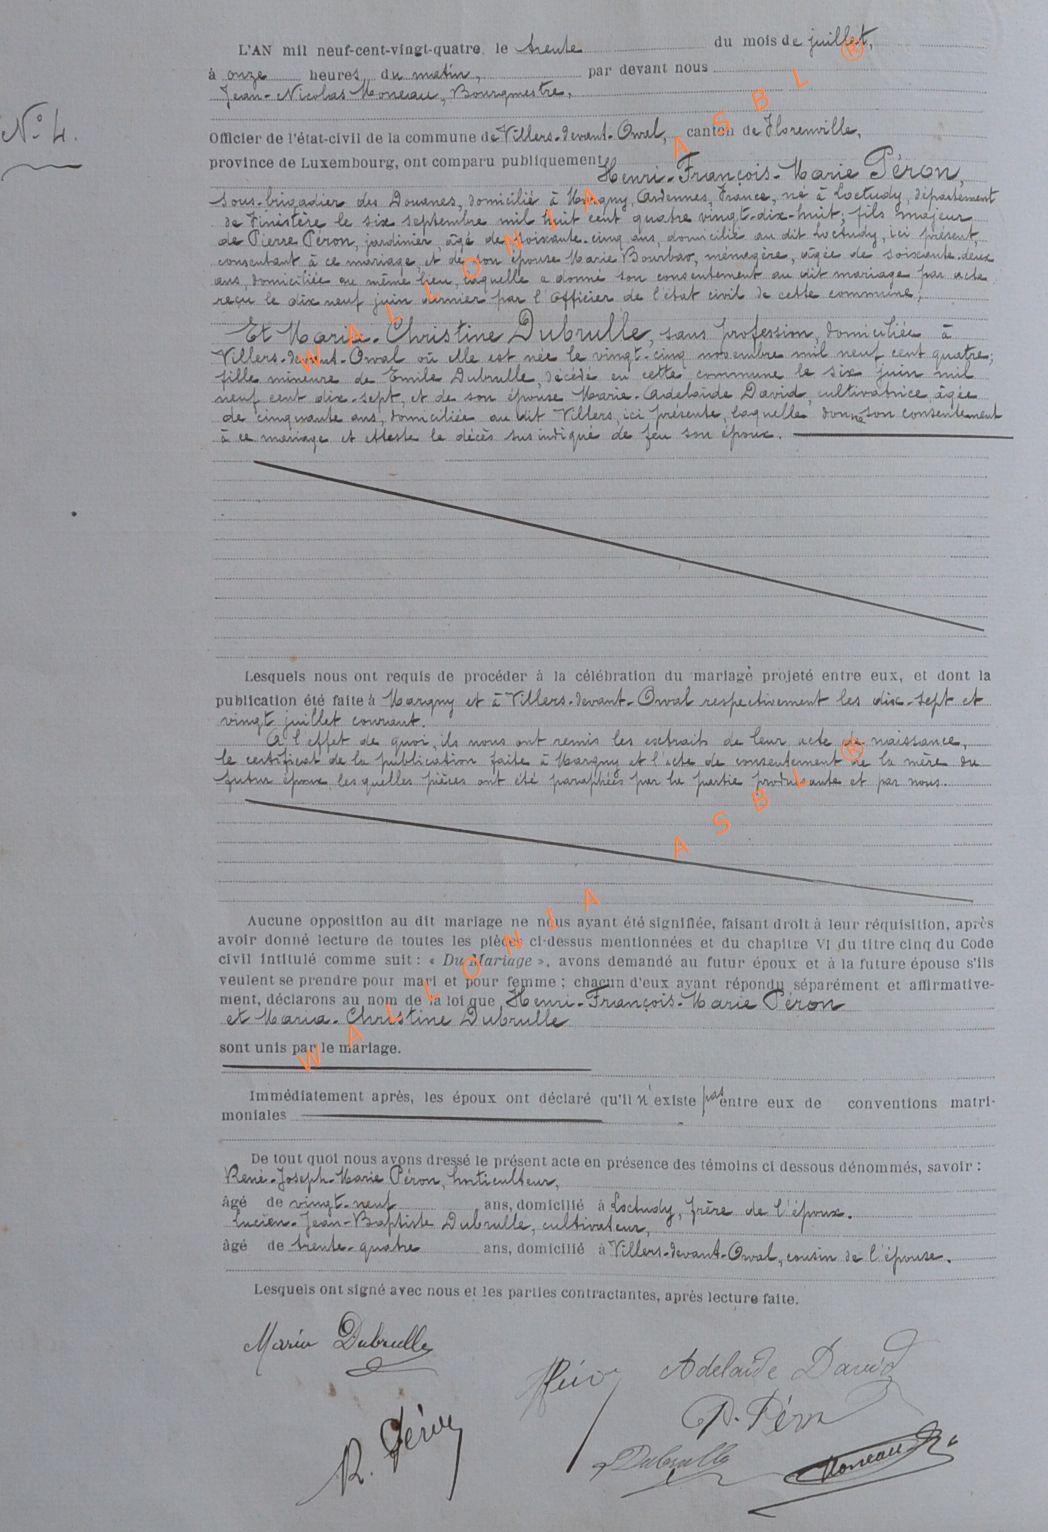 L'AN mil neuf-cent-vingt-quatre, le trente du mois de juillet,
à onze heures du matin, par devant nous
Jean-Nicolas Moreau, Bourgmestre,
N° 4.
Officier de l'état-civil de la commune de Villers-devant-Orval, canton de Florenville,
province de Luxembourg, ont comparu publiquement,
Henri-François-Marie Péron,
sous-brigadier des Douanes, domicilié à Margny, Ardennes, France, né à Loctudy, département
de Finistère le six septembre mil huit cent quatre vingt-dix-huit; fils majeur
de Pierre Péron, jardinier, âgé de soixante-cinq ans, domicilié au dit Loctudy, ici présent,
consentant à ce mariage, et de son épouse Marie Bourbao, ménagère, âgée de soixante-deux
ans, domiciliée au même lieu, laquelle a donné son consentement au dit mariage par acte
reçu le dix neuf juin dernier par l'Officier de l'état civil de cette commune;
Et Maria-Christine Dubrulle, sans profession, domiciliée à
Villers-devant-Orval où elle est née le vingt-cinq novembre mil neuf cent quatre;
fille mineure de Emile Dubrulle, décédé en cette commune le six juin mil
neuf cent dix-sept, et de son épouse Marie-Adelaïde David, cultivatrice, âgée
de cinquante ans, domiciliée au dit Villers, ici présente, laquelle donne son consentement
à ce mariage et atteste le décès sus indiqué de feu son époux.
Lesquels nous ont requis de procéder à la célébration du mariage projeté entre eux, et dont la
publication été faite à Margny et à Villers-devant-Orval respectivement les dix-sept et
vingt juillet courant.
A l'effet de quoi, ils nous ont remis les extraits de leur acte de naissance,
le certificat de la publication faite à Margny et l'acte de consentement de la mère du
futur époux, lesquelles pièces ont été paraphées par la partie produisante et par nous.
Aucune opposition au dit mariage ne nous ayant été signifiée, faisant droit à leur réquisition, après
avoir donné lecture de toutes les pièces ci-dessus mentionnées et du chapitre VI du titre cinq du Code
civil intitulé comme suit : « Du Mariage », avons demandé au futur époux et à la future épouse s'ils
veulent se prendre pour mari et pour femme ; chacun d'eux ayant répondu séparément et affirmative-
ment, déclarons au nom de la loi que Henri-François-Marie Péron
et Maria-Christine Dubrulle
sont unis par le mariage.
Immédiatement après, les époux ont déclaré qu'il n'existe pas entre eux de conventions matri-
moniales
De tout quoi nous avons dressé le présent acte en présence des témoins ci dessous dénommés, savoir :
René-Joseph-Marie Péron, horticulteur,
âgé de vingt-neuf ans, domicilié à Loctudy, frère de l'époux.
Lucien-Jean-Baptiste Dubrulle, cultivateur,
âgé de trente-quatre ans, domicilié à Villers-devant-Orval, cousin de l'épouse.
Lesquels ont signé avec nous et les parties contractantes, après lecture faite.
Maria Dubrulle
Adelaïde David
P. Péron
R. Péron
Dubrulle
Moreau
WALLONIA ASBL ®
WALLONIA ASBL ®